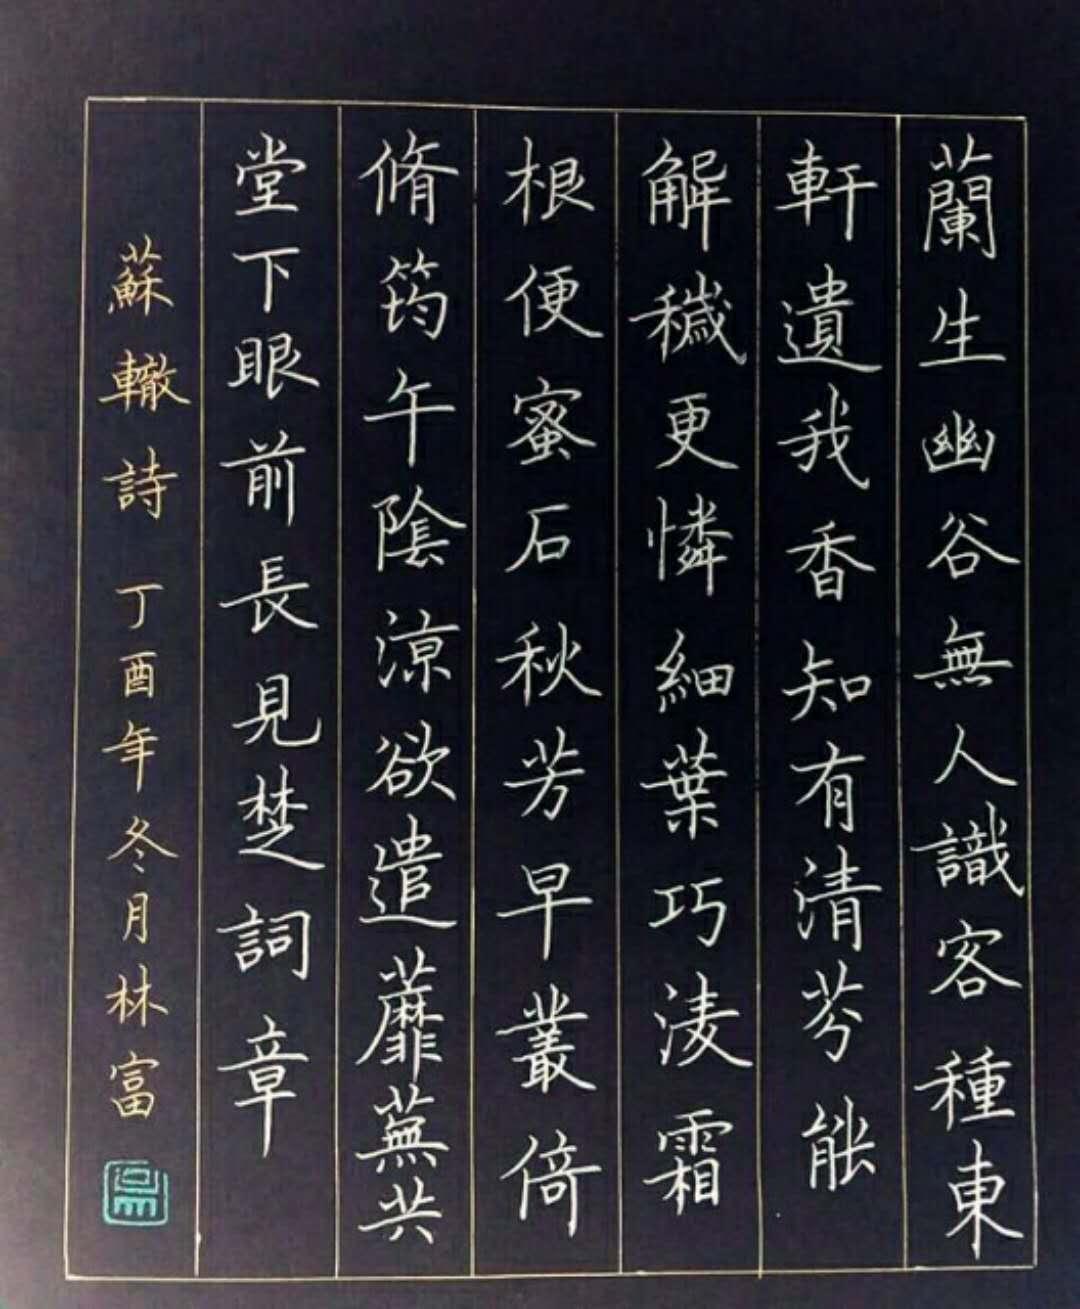 蘭生幽谷無人識客種東
軒遺我香知有清芬能
解穢更憐細葉巧淩霜
根便蜜石秋芳早叢倚
脩筠午陰涼欲遣蘼蕪共
堂下眼前長見楚詞章
蘇轍詩 丁酉年冬月林富